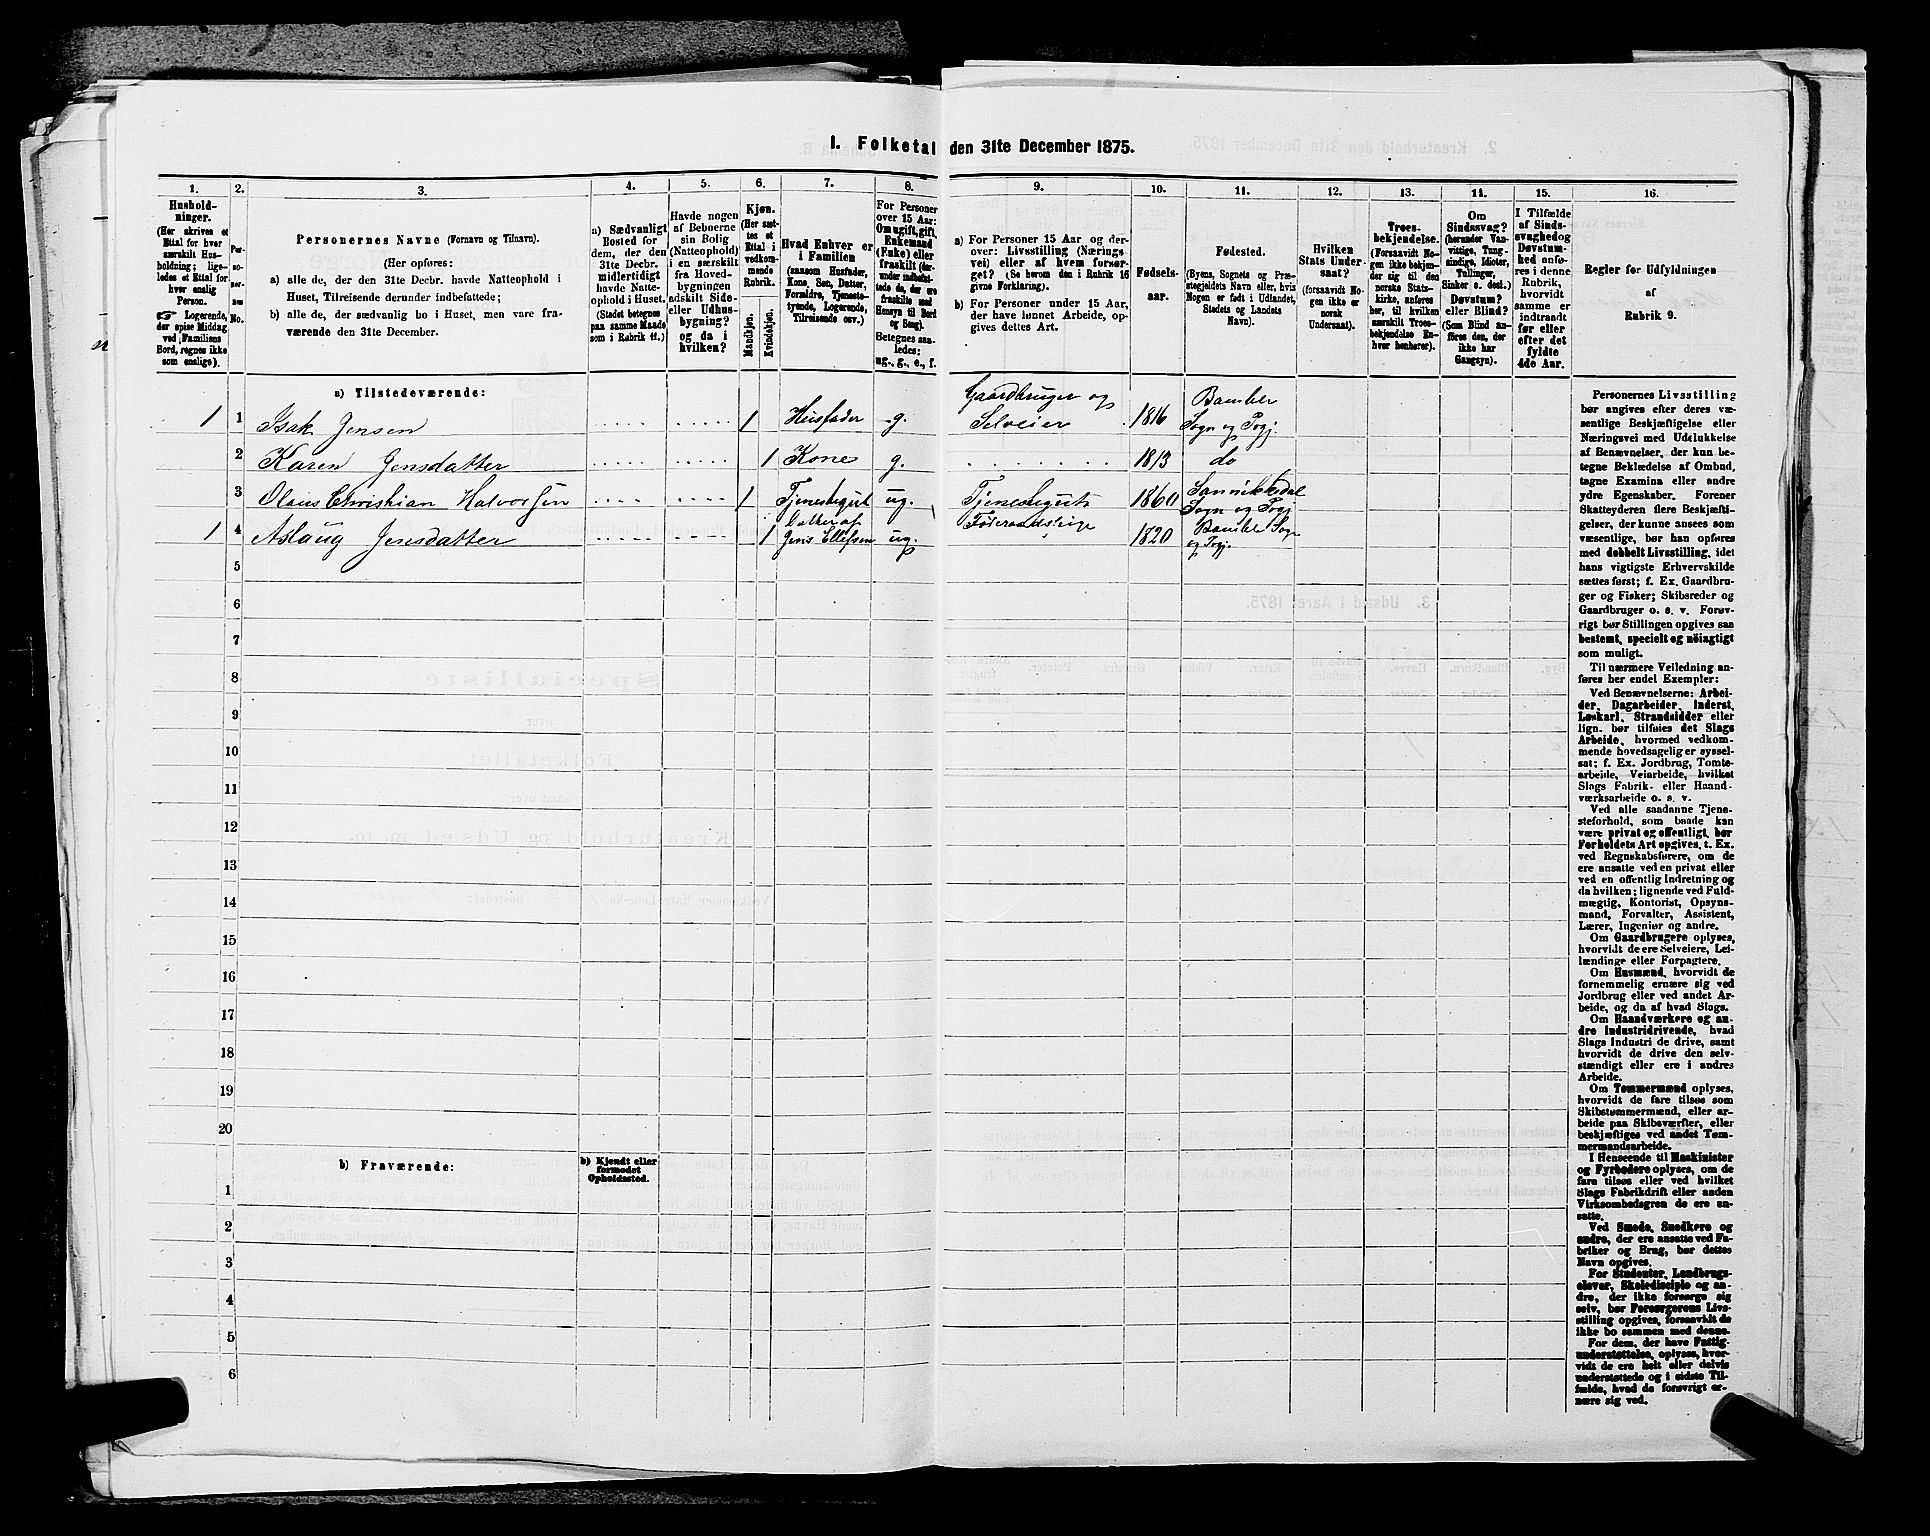 1. Folketal den 31te December 1875.
1. 2. 3. 4. 5. 6. 7. 8. 9. 10. 11. 12. 13. 14. 15. 16.
Hushold-
ninger.
(Her skrives et
Ettal for hver
særskilt Hus-
holdning; lige-
ledes et Ettal for
hver enslig
Person.
☞ Logerende,
der spise Middag
ved Familiens
Bord, regnes ikke
som enslige).
Per-
so-
ner-
nes
No.
Personernes Navne (Fornavn og Tilnavn).
(Her opføres:
a) alle de, der den 31te Decbr. havde Natteophold i
Huset, Tilreisende derunder indbefattede;
b) alle de, der sædvanlig bo i Huset, men vare fra-
værende den 31te December.
a) Sædvanligt
Bosted for
dem, der den
31te Decbr.
midlertidigt
havde Natte-
ophold i Huset.
(Stedet betegnes
paa samme Maade
som i Rubrik 11.)
Havde nogen
af Beboerne
sin Bolig
(Natteophold)
i en særskilt
fra Hoved-
bygningen
adskilt Side-
eller Udhus-
bygning?
og da i
hvilken?
Kjøn.
(Her sæt-
tes et
Ettal i
vedkom-
mende
Rubrik.
Mandkjøn.
Kvindekjøn.
Hvad Enhver er
i Familien
(saasom Husfader,
Kone, Søn, Datter,
Forældre, Tjeneste-
tyende, Logerende,
Tilreisende osv.)
For Personer
over 15 Aar:
Om ugift, gift,
Enkemand
(Enke) eller
fraskilt (der-
under indbefat-
tede de, der ere
fraskilte med
Hensyn til Bord
og Seng).
Betegnes saa-
ledes:
ug., g., e., f.
a) For Personer 15 Aar og der-
over: Livsstilling (Nærings-
vei) eller af hvem forsør-
get? (Se herom den i Rubrik 16
givne Forklaring).
b) For Personer under 15 Aar,
der have lønnet Arbeide, op-
gives dettes Art.
Fødsels-
aar.
Fødested.
(Byens, Sognets og Præ-
stegjeldets Navn eller, hvis
Nogen er født i Udlandet,
Stedets og Landets
Navn).
Hvilken
Stats Under-
saat?
(forsaavidt No-
gen ikke er
norsk
Undersaat).
Troes-
bekjendelse.
(Forsaavidt No-
gen ikke bekjen-
der sig til den
norske Stats-
kirke, anføres
her, til hvilken
særskilt Troes-
bekjendelse En-
hver henhører).
Om
Sindssvag?
(herunder Van-
vittige, Tung-
sindige, Idioter,
Tullinger,
Sinker o. desl.)
Døvstum?
eller Blind?
(Som Blind an-
føres den, der
ikke har
Gangsyn).
I Tilfælde
af Sinds-
svaghed og
Døvstum-
hed anfø-
res i denne
Rubrik,
hvorvidt
samme er
indtraadt
før eller
efter det
fyldte
4de Aar.
Regler for Udfyldningen
af
Rubrik 9.
a) Tilstedeværende:
1 1 Isak Jensen 1 Husfader g. Gaardbruger og Selveier 1816 Bamble Sogn og Prgj.
2 Karen Jensdatter 1 Kone g. 1813 do
3 Olaus Christian Halvorsen 1 Tjenestegut ug. Tjenestegut 1860 Sannikedal Sogn og Prgj
1 4 Aslaug Jensdatter 1 Datter af Jens Ellefsen ug. Føderaadspige 1820 Bamble Sogn og Prgj.
5
6
7
8
9
10
11
12
13
14
15
16
17
18
19
20
b) Fraværende:
b) Kjendt eller
formodet
Opholdssted.
1
2
3
4
5
6
Personernes Livsstilling
bør angives efter deres væ-
sentlige Beskjæftigelse eller
Næringsvei med Udelukkelse
af Benævnelser, der kun be-
tegne Beklædelse af Ombud,
tagne Examina eller andre
ydre Egenskaber. Forener
Skatteyderen flere Beskjæfti-
gelser, der kunne ansees som
væsentlige, bør han opføres
med dobbelt Livsstilling, idet
hans vigtigste Erhvervskilde
sættes først; f. Ex. Gaardbru-
ger og Fisker; Skibsreder og
Gaardbruger o. s. v. Forøv-
rigt bør Stillingen opgives saa
bestemt, specielt og nöiagtigt
som muligt.
Til nærmere Veiledning an-
føres her endel Exempler:
Ved Benævnelserne: Arbei-
der, Dagarbeider, Inderst,
Løskarl, Strandsidder eller
lign. bør tilføies det Slags
Arbeide, hvormed vedkom-
mende hovedsagelig er syssel-
sat; f. Ex. Jordbrug, Tomte-
arbeide, Veiarbeide, hvilket
Slags Fabrik- eller Haand-
værksarbeide o. s. v.
Ved alle saadanne Tjene-
steforhold, som baade kan
være privat og offentligt, bør
Forholdets Art opgives, t. Ex.
ved Regnskabsførere, om de
ere ansatte ved en privat eller
ved en offentlig Indretning og
da hvilken; lignende ved Fuld-
mægtig, Kontorist, Opsyns-
mand, Forvalter, Assistent,
Lærer, Ingeniør og andre.
Om Gaardbrugere oplyses,
hvorvidt de ere Selveiere, Lei-
lændinge eller Forpagtere.
Om Husmænd, hvorvidt de
fornemmelig ernære sig ved
Jordbrug eller ved andet Ar-
beide, og da af hvad Slags.
Om Haandværkere og an-
dre Industridrivende, hvad
Slags Industri de drive, samt
hvorvidt de drive den selv-
stændigt eller ere i andres
Arbeide.
Om Tømmermænd oplyses,
hvorvidt de fare tilsøs som
Skibstømmermænd, eller ar-
beide paa Skibsværfter, eller
beskjæftiges ved andet Tøm-
mermandsarbeide.
I Henseende til Maskinister
og Fyrbødere oplyses, om de
fare tilsøs eller ved hvilket
Slags Fabrikdrift eller anden
Virksomhedsgren de ere an-
satte.
Ved Smede, Snedkere og
andre, der ere ansatte ved Fa-
briker og Brug, bør dettes
Navn opgives.
For Studenter, Landbrugs-
elever, Skoledisciple og an-
dre, der ikke forsørge sig
selv, bør Forsørgerens Livs-
stilling opgives, forsaavidt de
ikke bo sammen med denne.
For dem, der have Fattig-
understøttelse, oplyses, hvor-
vidt de ere helt eller delvis
understøttede og i sidste Til-
fælde, hvad de forøvrigt er-
nære sig ved.